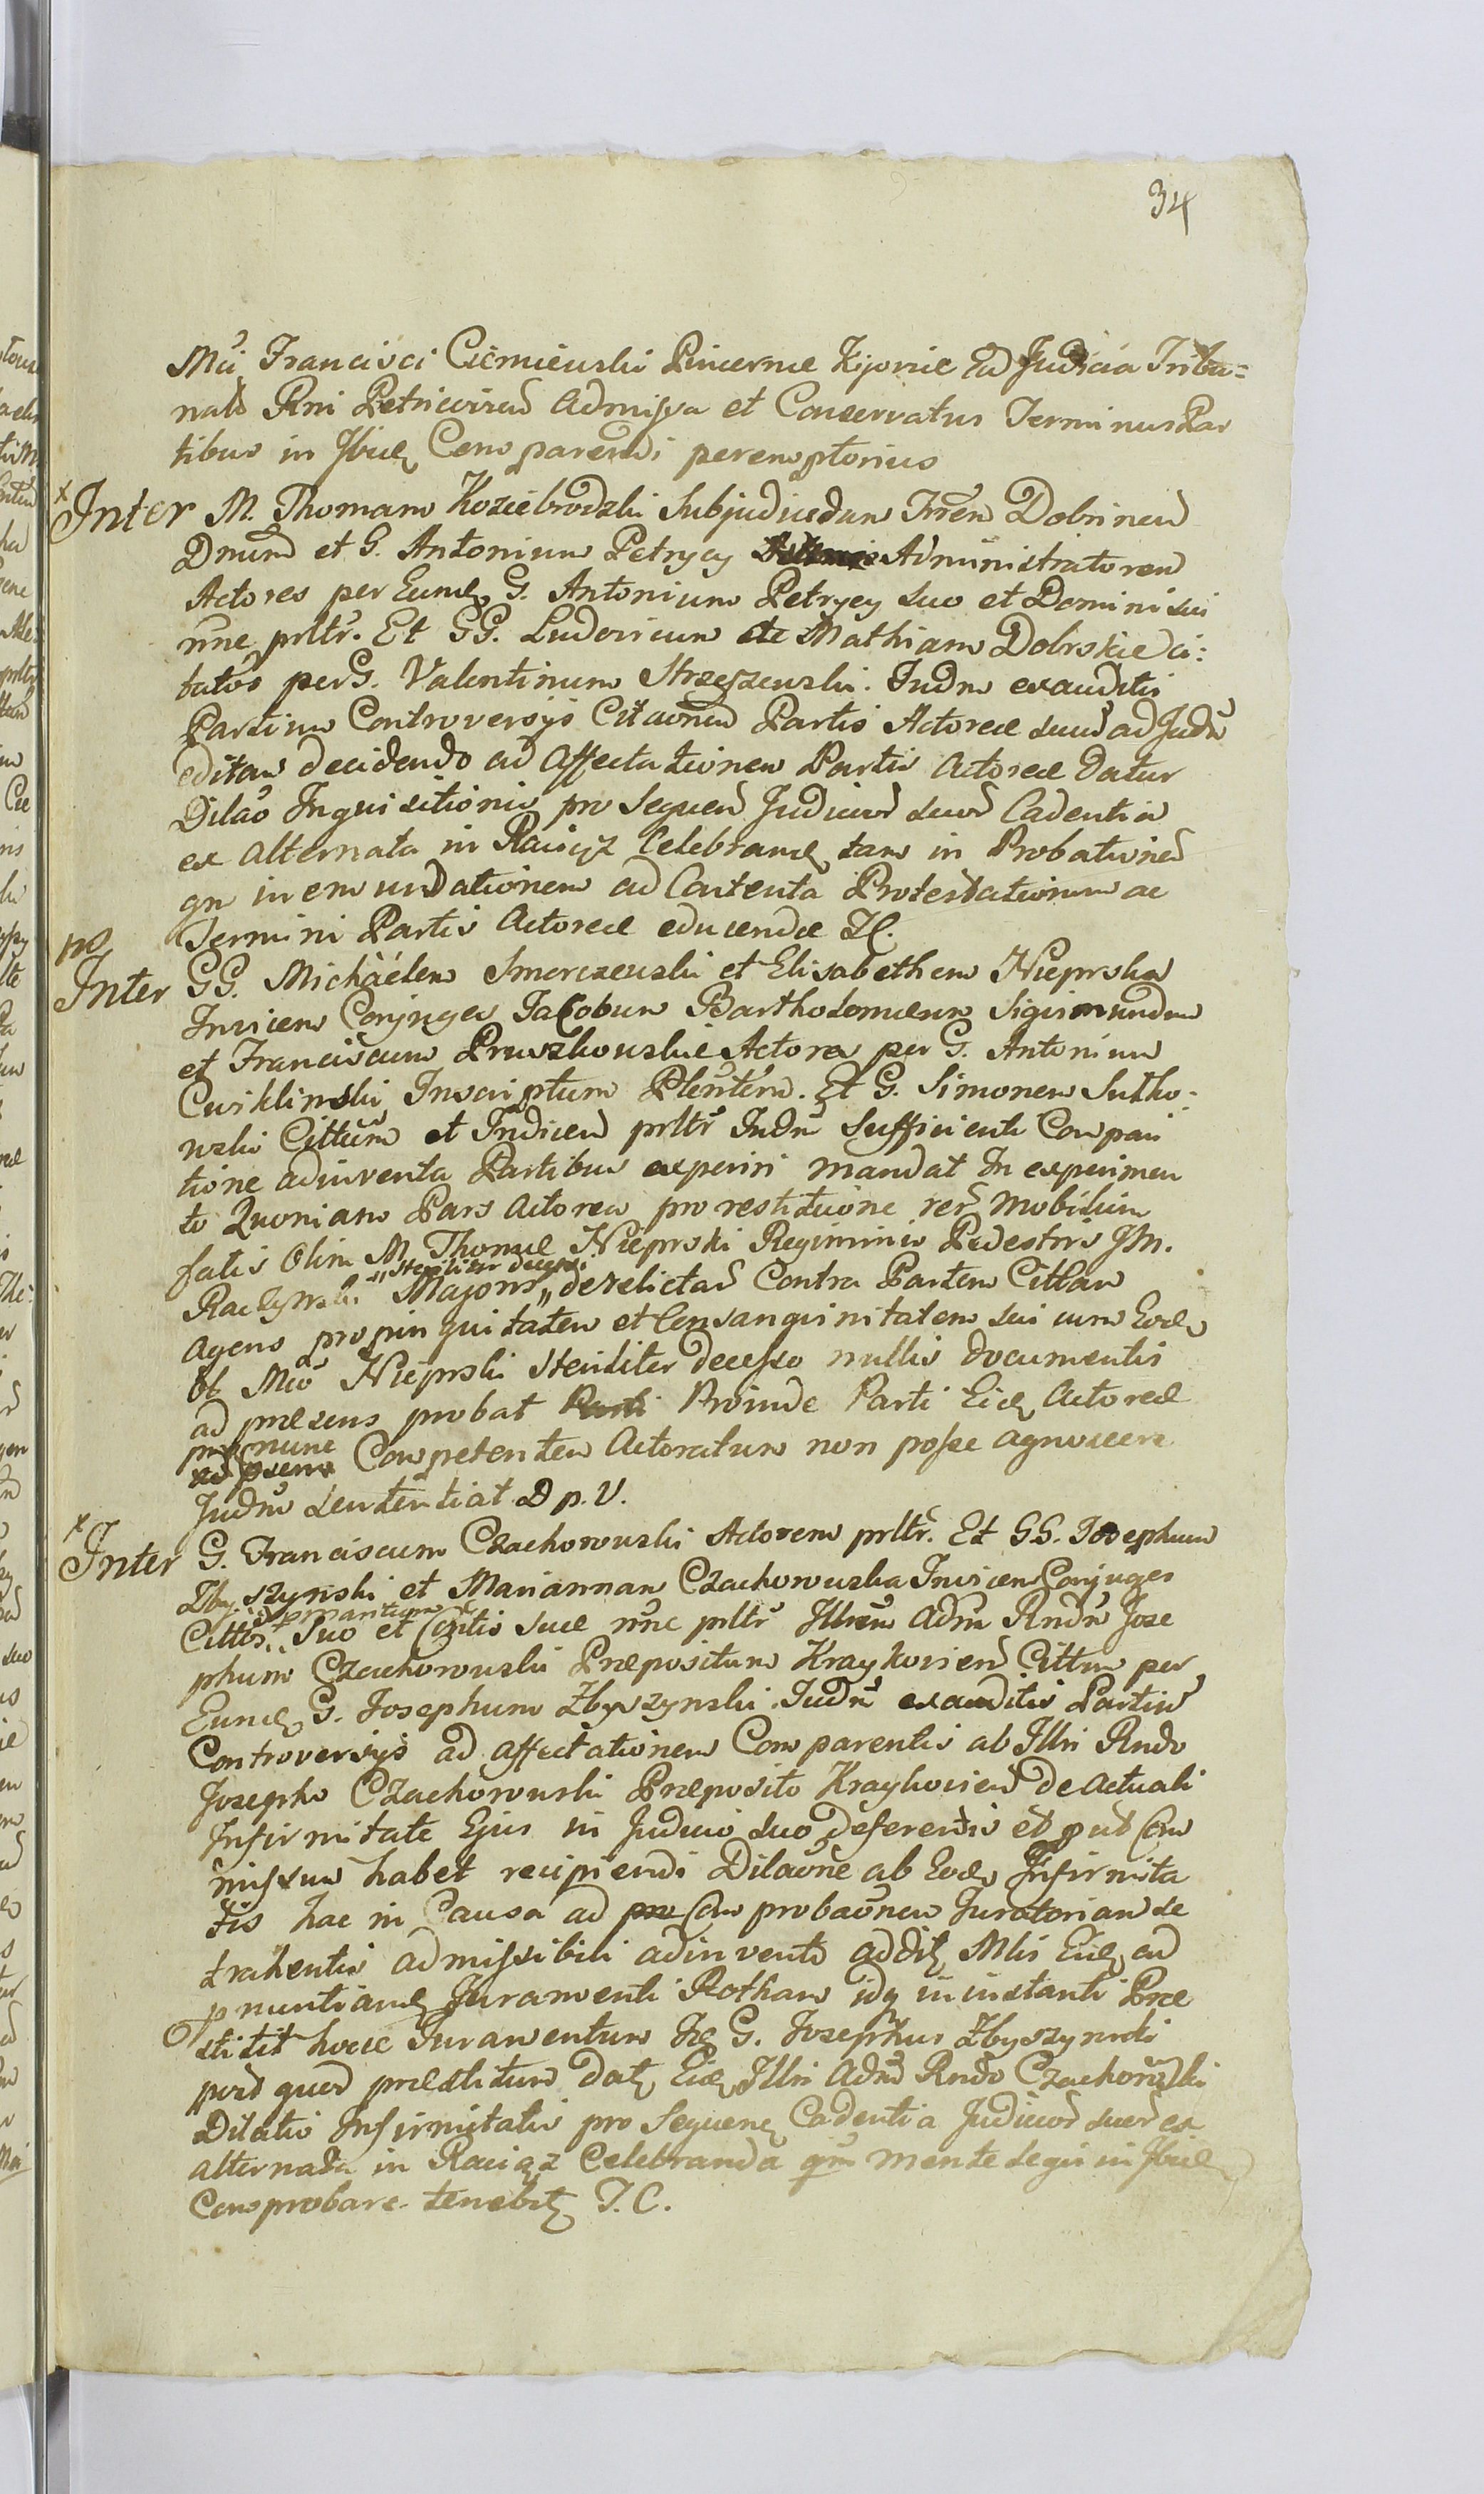 34
Mci Francisci Ciemieuski Pincernæ Kijoviæ Ad Judicia Tribu=
nald Rni Petricovien Admissa et Conservatus Terminus Par
tibus in Ibid Comparendi peremptorius
x Inter M. Thomam Koziebrodzki Subjudicedum Trren Dobrinen
Dnum et G. Antonium Petrycy Administratorem
Actores per Eund G. Antonium Petrycy suo et Domini sui
nne prltr. Et GG. Ludovicum et Mathiam Dolrskie ci:
tatos per G. Valentinum Strzeszewski. Judm exauditis
Partium Controversijs Citaonem Partis Actoreæ suum ad Judm
editam decidendo ad Affectationem Partis Actoreæ datur
Dilao Inquisitionis pro Sequen Judicior suor Cadentia
ex alternata in Raciąż Celebrand tam in Probationem
qm in emundationem ad Contenta Protestationum ac
Termini Partis Actoreæ educendæ
po
Inter GG. Michaelem Smorczewski et Elisabetham Nieprska
Invicem Conjuges Jacobum Bartholomæum Sigismundum
et Franciscum Pruszkowskie Actores per G. Antonium
Cwiklinski Inscriptum Plentem. Et G. Simonem Sutko=
wski Cittum et Indicem prltr Judm Sufficienti Compari
tione adinventa Partibus experiri mandat In experimen
to Quoniam Pars Actorea pro restitutione rer Mobilium
fatis Olim M. Thomæ Nieprski Regiminis Pedestris Jm.
Raczynski Majoris „steriliter decessi„ derelictar Contra Partem Cittam
agens propinquitatem et Consangvinitatem sui cum Eod
ol Mco Nieprski steriliter decesso nullis documentis
ad præsens probat Parti Proinde Parti Eid Actoreæ
pro nunc ad præsens Competentem Actoratum non posse agnoscere
Judm sententiat D p. V.
x Inter G. Franciscum Czachorowski Actorem prltr. Et GG. Josephum
Zbyszynski et Mariannam Czachorowska Invicem Conjuges
Cittos maritum suo et Cntis suæ nne prltr Illrem Adm Rndm Jose
phum Czachorowski Præpositum Kraykovien Cittum per
Eund G. Josephum Zbyszynski. Judm exauditis Partium
Controversijs ad affectationem Comparentis ab Illri Rndo
Josepho Czachorowski Præposito Kraykovien de actuali
Infirmitate Ejus in Judicio suo deferendis et put Com
missum habet recipiendi Dilaone ab Eod Infirmita
tis hac in Causa ad pro Comprobaonem Juratoriam se
trahentis admissibili adinvento addit Mlis Eid ad
pnuntiand Juramenti Rotham idq in instanti Præ
stitit hocce Juramentum Idem G. Josephus Zbyszynski
post quod præstitum dat Eid Illri Adm Rndo Czachorowski
Dilatio Infirmitatis pro Sequen Cadentia Judicior suor ex
alternata in Raciąż Celebranda qm mente Legis in Ibid
Comprobare tenebit T. C.